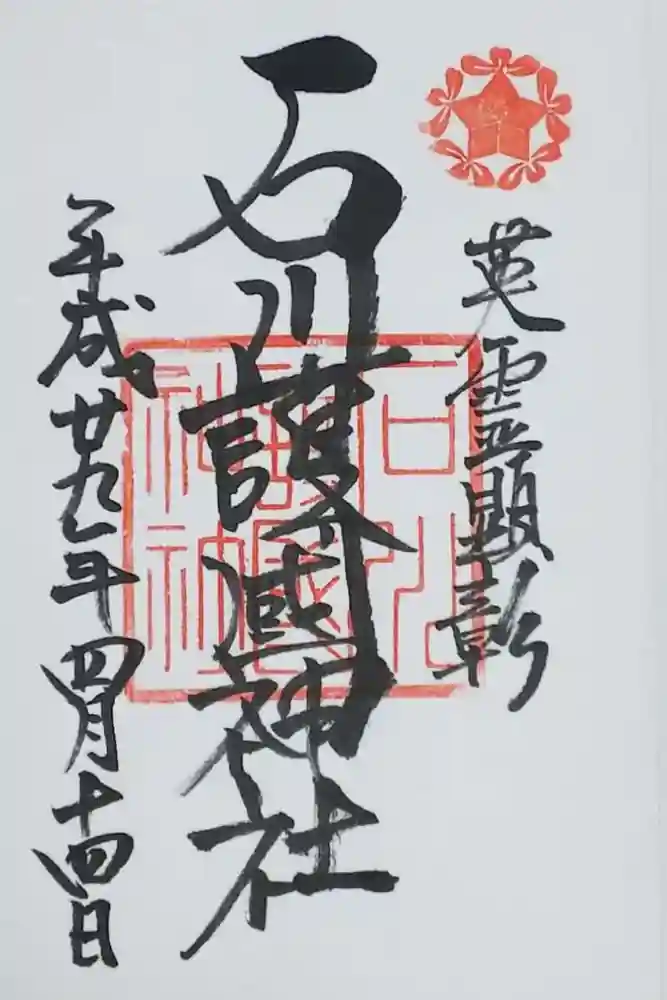 英霊顕彰
石川護國神社
石川護國神社
平成廿九年四月十四日